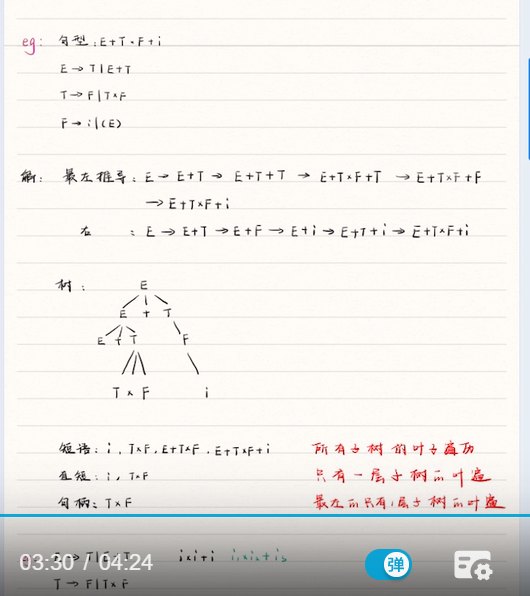 eg: 句型:E+T×F+i
E→T|E+T
T→F|T×F
F→i|(E)
解: 最左推导:E→E+T→E+T+T→E+T×F+T→E+T×F+F
→E+T×F+i
右 :E→E+T→E+F→E+i→E+T+i→E+T×F+i
树:
E
E + T
E + T F
T × F i
短语:i, T×F, E+T×F, E+T×F+i 所有子树的叶子遍历
直短:i, T×F 只有一层子树的叶遍
句柄:T×F 最左的只有1层子树的叶遍
03:30 / 04:24
T|E+T i×i+i i₁×i₂+i₃
弹
T→F|T×F